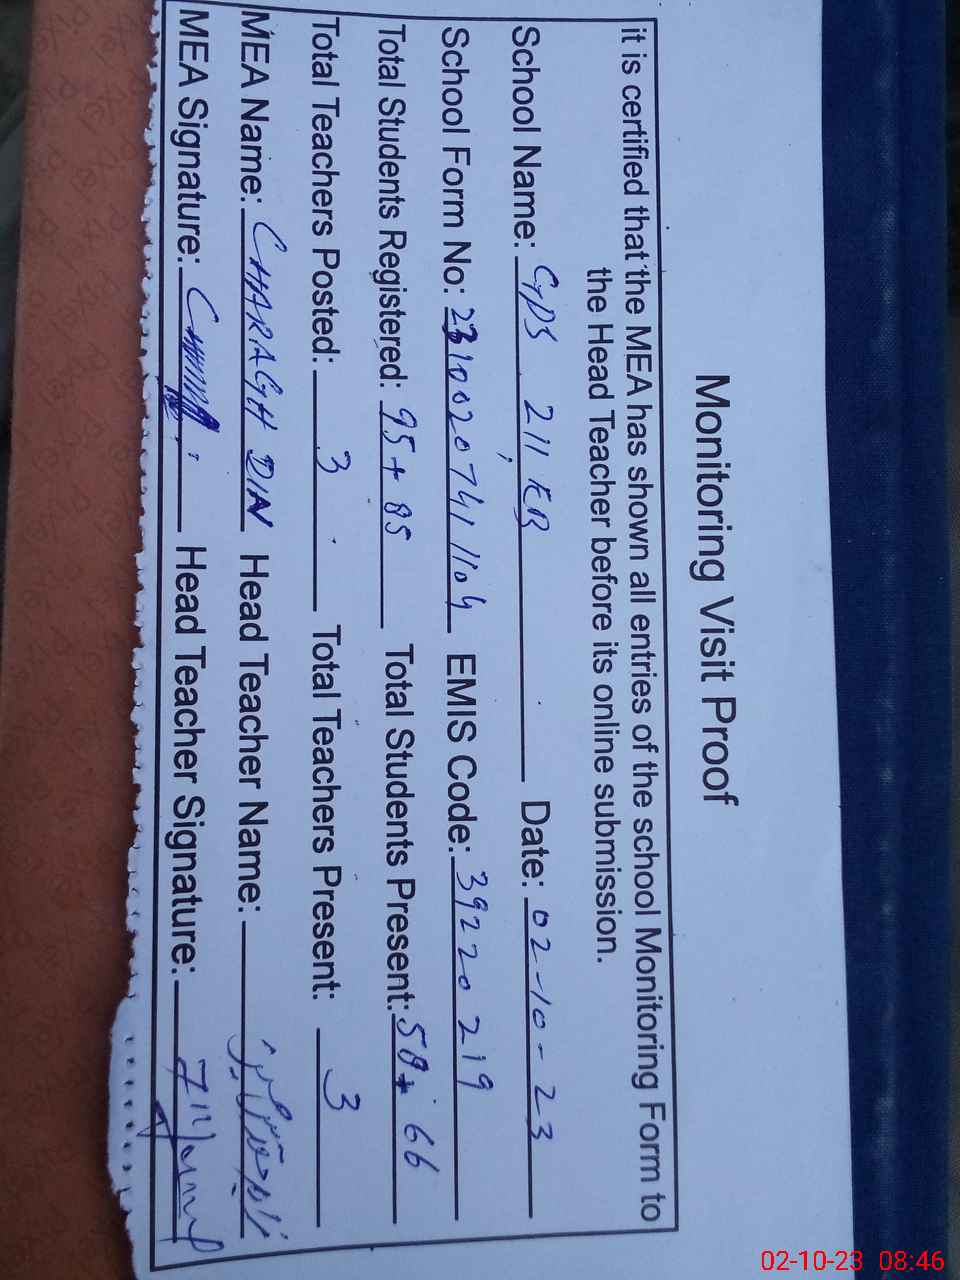 Monitoring Visit Proof
it is certified that the MEA has shown all entries of the school Monitoring Form to
the Head Teacher before its online submission.
School Name: GPS 211 EB Date: 02-10-23
School Form No: 23100207411104 EMIS Code: 39220219
Total Students Registered: 95+85 Total Students Present: 58+66
Total Teachers Posted: 3 Total Teachers Present: 3
MEA Name: CHARAGH DIN Head Teacher Name:
MEA Signature: Head Teacher Signature:
02-10-23 08:46